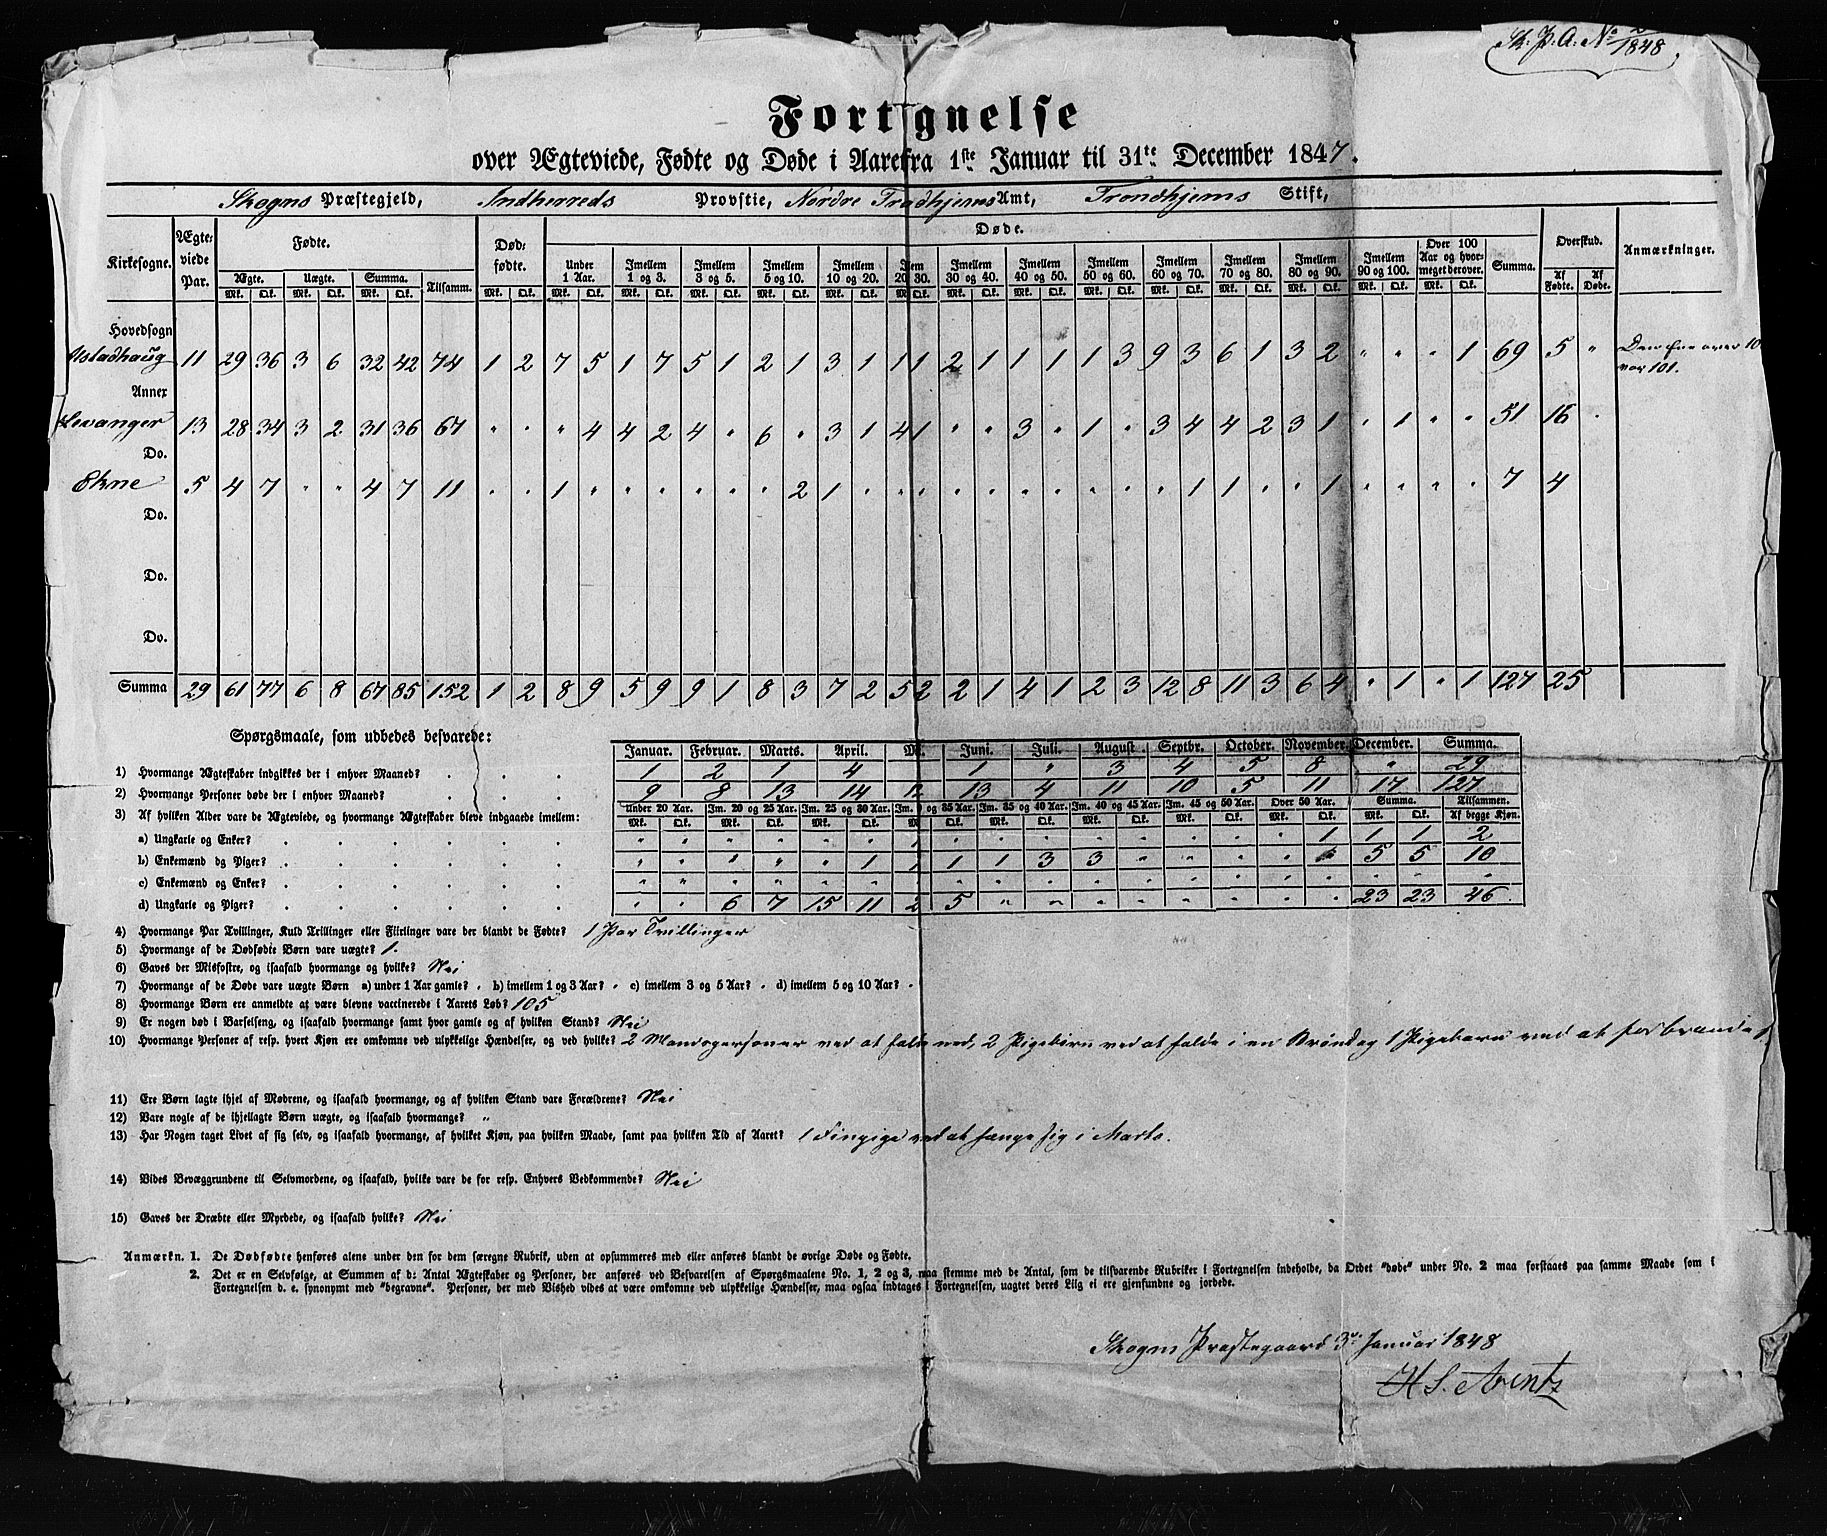 Sk. P. A. No 2/1848
Fortegnelse
over Ægteviede, Fødte og Døde i Aaret fra 1ste Januar til 31te December 1847.
Skogns Præstegjeld, Indherreds Provstie, Nordre Trondhjems Amt, Trondhjems Stift,
Kirkesogne. Ægteviede Par. Fødte. Dødfødte. Døde. Overskud. Anmærkninger.
Ægte. Uægte. Summa. Tilsamm. Under 1 Aar. Imellem 1 og 3. Imellem 3 og 5. Imellem 5 og 10. Imellem 10 og 20. Imellem 20 og 30. Imellem 30 og 40. Imellem 40 og 50. Imellem 50 og 60. Imellem 60 og 70. Imellem 70 og 80. Imellem 80 og 90. Imellem 90 og 100. Over 100 Aar og hvormeget derover. Summa. Af Fødte. Af Døde.
Mk. Qk. Mk. Qk. Mk. Qk. Mk. Qk. Mk. Qk. Mk. Qk. Mk. Qk. Mk. Qk. Mk. Qk. Mk. Qk. Mk. Qk. Mk. Qk. Mk. Qk. Mk. Qk. Mk. Qk. Mk. Qk. Mk. Qk. Mk. Qk.
Hovedsogn
Alstadhaug 11 29 36 3 6 32 42 74 1 2 7 5 1 7 5 1 2 1 3 1 1 1 2 1 1 1 1 3 9 3 6 1 3 2 " " " 1 69 5 " Den Ene over 100
var 101.
Annex
Levanger 13 28 34 3 2 31 36 67 " " " 4 4 2 4 " 6 " 3 1 4 1 " " 3 " 1 " 3 4 4 2 3 1 " 1 " " 51 16 "
Do.
Ekne 5 4 7 " " 4 7 11 " " 1 " " " " " " 2 1 " " " " " " " " " " 1 1 " " 1 " " " " 7 4
Do.
Do.
Do.
Summa 29 61 77 6 8 67 85 152 1 2 8 9 5 9 9 1 8 3 7 2 5 2 2 1 4 1 2 3 12 8 11 3 6 4 " 1 " 1 127 25
Spørgsmaale, som udbedes besvarede:
Januar. Februar. Marts. April. Mai. Juni. Juli. August Septbr. October. November. December. Summa.
1) Hvormange Ægteskaber indgikkes der i enhver Maaned? 1 2 1 4 1 " 3 4 5 8 " 29
2) Hvormange Personer døde der i enhver Maaned? 9 8 13 14 12 13 4 11 10 5 11 17 127
Under 20 Aar. Im. 20 og 25 Aar. Im. 25 og 30 Aar. Im. 30 og 35 Aar. Im. 35 og 40 Aar. Im. 40 og 45 Aar. Im. 45 og 50 Aar. Over 50 Aar. Summa. Tilsammen.
3) Af hvilken Alder vare de Ægteviede, og hvormange Ægteskaber bleve indgaaede imellem: Mk. Qk. Mk. Qk. Mk. Qk. Mk. Qk. Mk. Qk. Mk. Qk. Mk. Qk. Mk. Qk. Mk. Qk. Af begge Kjøn.
a) Ungkarle og Enker? " " " " " " 1 " " " " " " " " 1 1 1 2
b) Enkemænd og Piger? " " " " " 1 1 1 1 3 3 " " " " " 5 5 10
c) Enkemænd og Enker? " " " " " " " " " " " " " " " " " " "
d) Ungkarle og Piger? " " 6 7 15 11 2 5 " " " " " " " " 23 23 46
4) Hvormange Par Tvillinger, Kuld Trillinger eller Fiirlinger vare der blandt de Fødte? 1 Par Tvillinger
5) Hvormange af de Dødfødte Børn vare uægte? 1.
6) Gaves der Misfostre, og isaafald hvormange og hvilke? Nei
7) Hvormange af de Døde vare uægte Børn a) under 1 Aar gamle? " b) imellem 1 og 3 Aar? " c) imellem 3 og 5 Aar? " d) imellem 5 og 10 Aar? "
8) Hvormange Børn ere anmeldte at være blevne vaccinerede i Aarets Løb? 105
9) Er nogen død i Barselseng, og isaafald hvormange samt hvor gamle og af hvilken Stand? Nei
10) Hvormange Personer af resp. hvert Kjøn ere omkomne ved ulykkelige Hændelser, og ved hvilke? 2 Mandspersoner ved at falde ned, 2 Pigebørn ved at falde i en Brønd og 1 Pigebarn ved at forbrændes
11) Ere Børn lagte ihjel af Mødrene, og isaafald hvormange, og af hvilken Stand vare Forældrene? Nei
12) Vare nogle af de ihjellagte Børn uægte, og isaafald hvormange? "
13) Har Nogen taget Livet af sig selv, og isaafald hvormange, af hvilket Kjøn, paa hvilken Maade, samt paa hvilken Tid af Aaret? 1 ved at hænge sig i Marts.
14) Vides Bevæggrundene til Selvmordene, og isaafald, hvilke vare de for resp. Enhvers Vedkommende? Nei
15) Gaves der Dræbte eller Myrdede, og isaafald hvilke? Nei
Anmærkn. 1. De Dødfødte henføres alene under den for dem særegne Rubrik, uden at opsummeres med eller anføres blandt de øvrige Døde og Fødte.
2. Det er en Selvfølge, at Summen af d: Antal Ægteskaber og Personer, der anføres ved Besvarelsen af Spørgsmaalene No. 1, 2 og 3, maa stemme med de Antal, som de tilsvarende Rubriker i Fortegnelsen indeholde, da Ordet "døde" under No. 2 maa forstaaes paa samme Maade som i
Fortegnelsen d. e. synonymt med "begravne". Personer, der med Vished vides at være omkomne ved ulykkelige Hændelser, maa ogsaa indtages i Fortegnelsen, uagtet deres Liig ei ere gjenfundne og jordede.
Skogns Præstegaard 3die Januar 1848
H S. Arentz